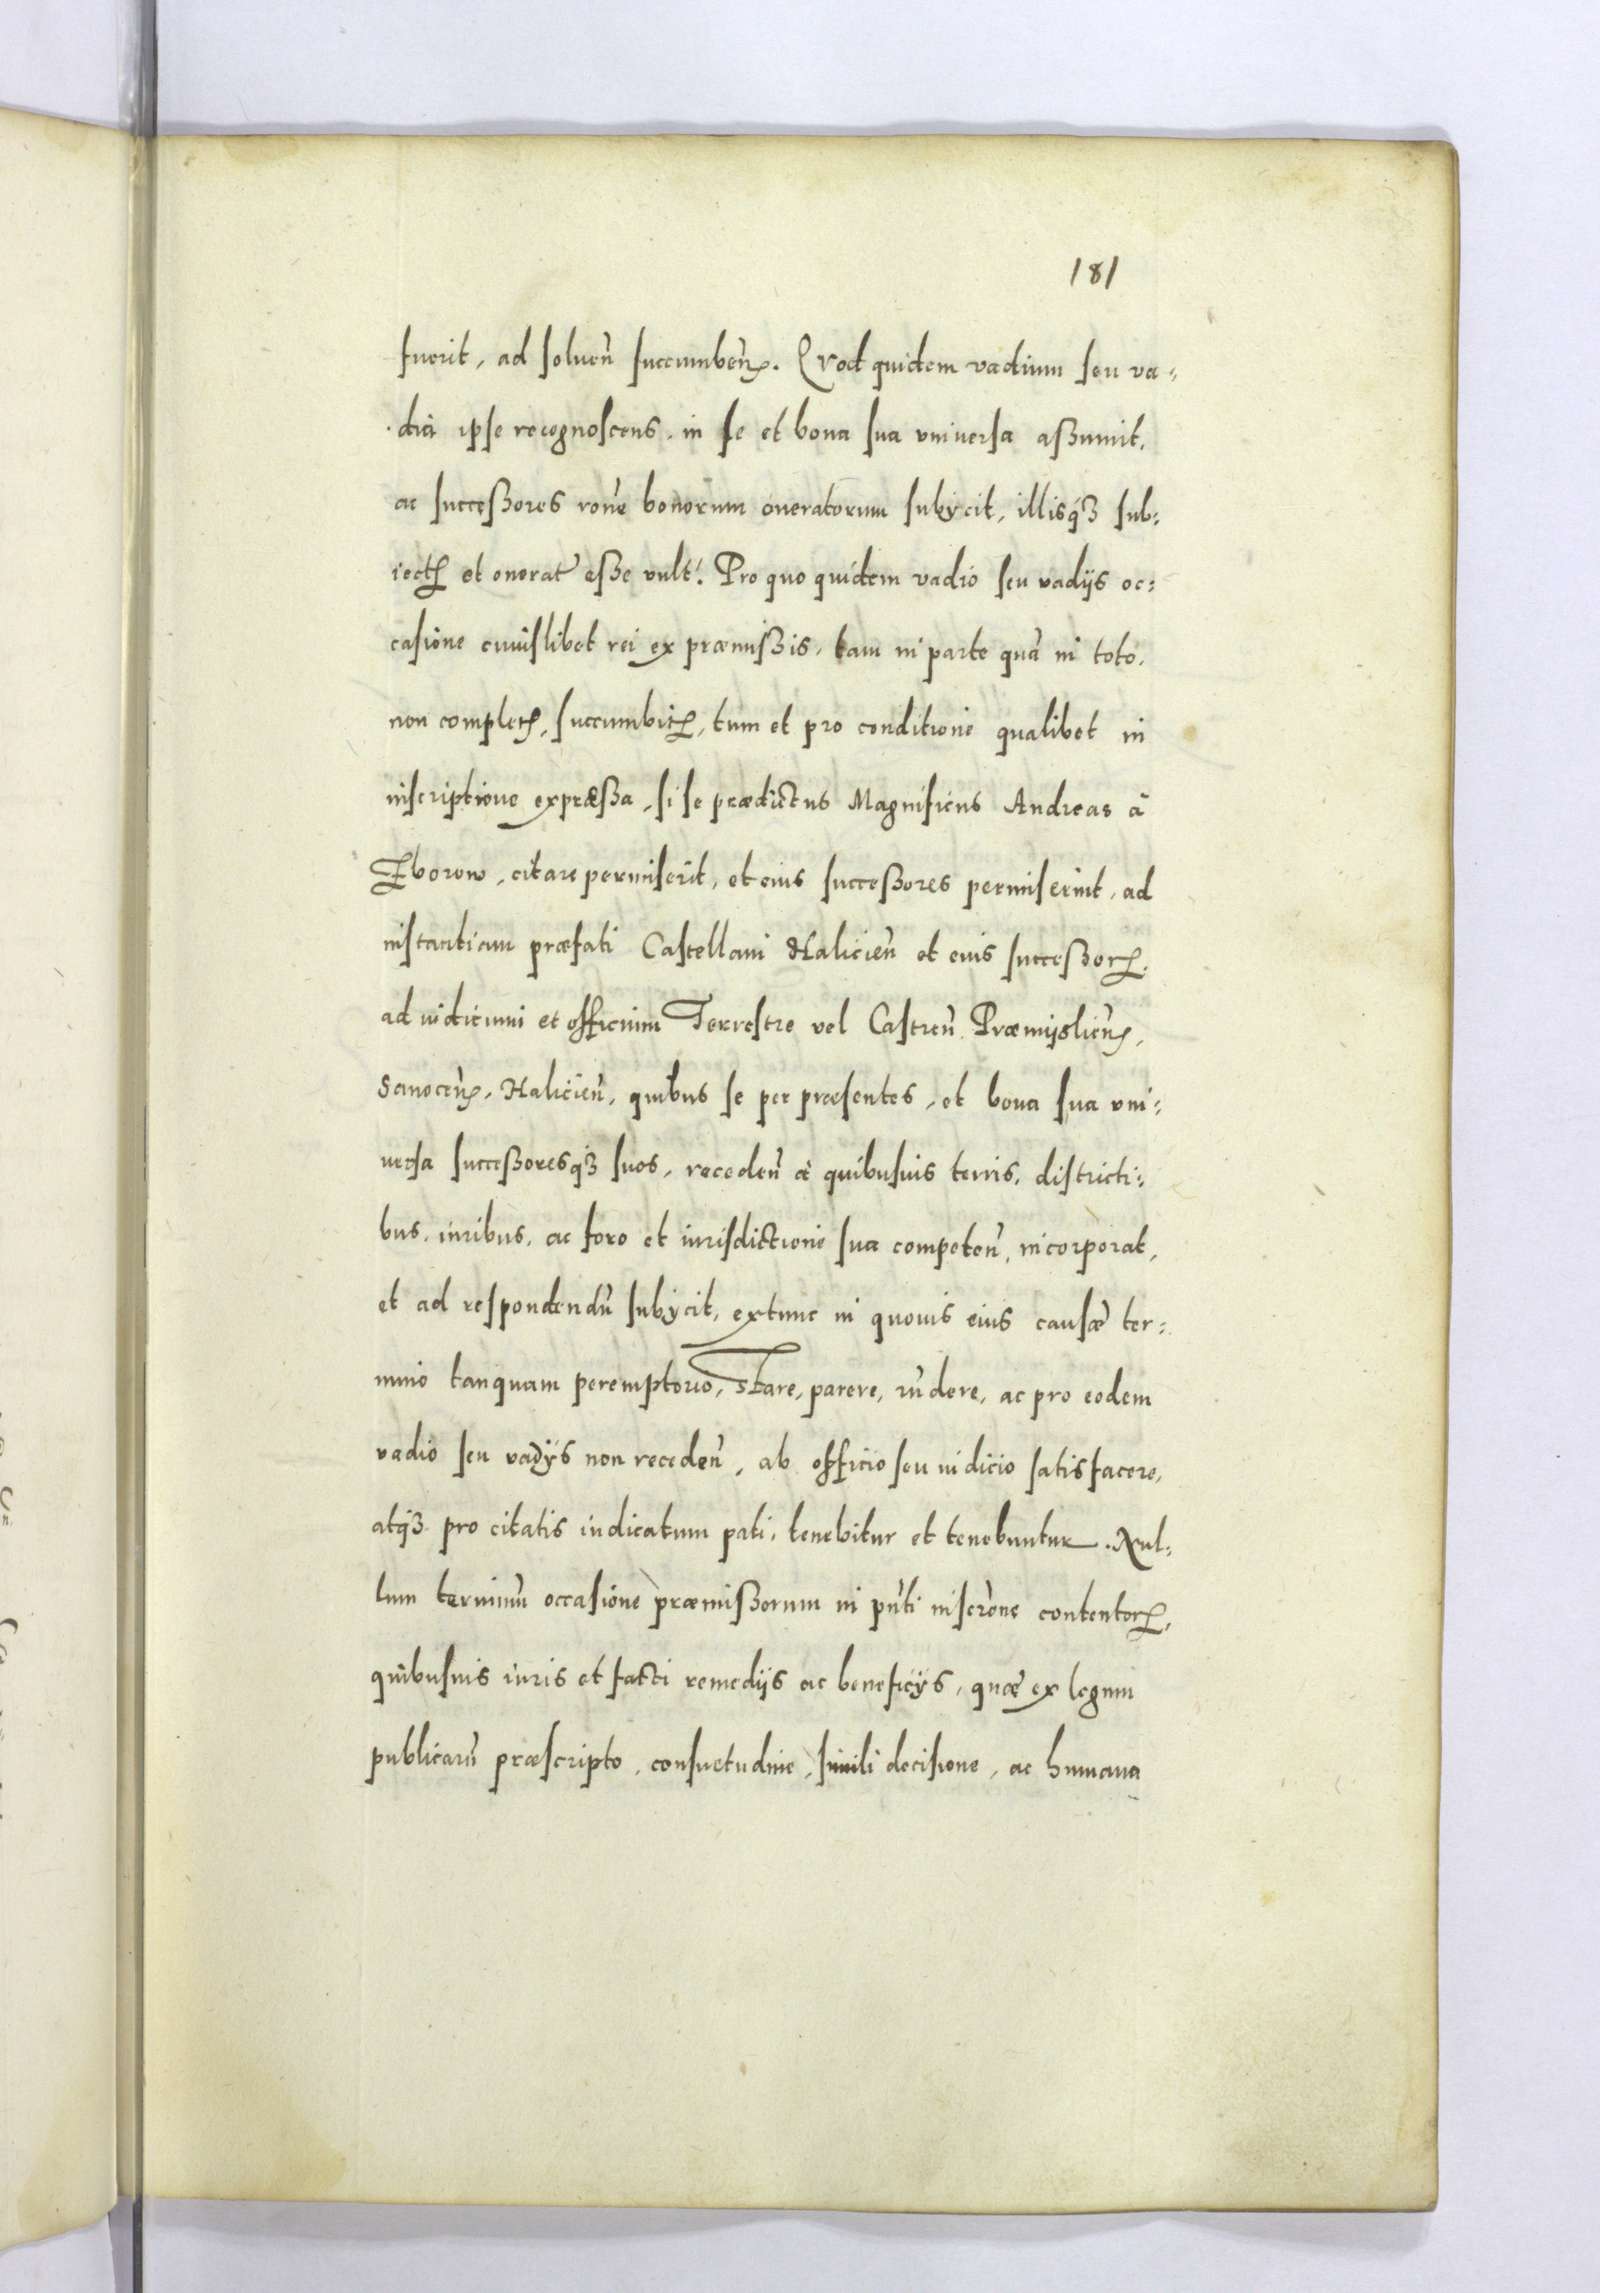 181
fuerit, ad soluen̄ succumbeñ. Quod quidem vadium seu va⸗
dia ipse recognoscens, in se et bona sua vniuersa aßumit,
ac succeßores roñe bonorum oneratorum subÿcit, illisqꝫ sub⸗
iectꝭ et onerat eße vult. Pro quo quidem vadio seu vadijs oc⸗
casione cuiuslibet rei ex præmißis, tam in parte quā in toto,
non completꝭ, succumbitꝭ, tum et pro conditione qualibet in
inscriptione expræßa, si se prædictus Magnificus Andreas à
Tworow, citare permiserit, et eius succeßores permiserint, ad
instantiam præfati Castellani Halicien̄ et eius succeßorꝝ,
ad iudicium et officium Terrestre vel Castren̄ Præmislien̄,
Sanocen̄, Halicien̄, quibus se per præsentes, et bona sua vni⸗
uersa succeßoresqꝫ suos, receden̄ à quibusuis terris, districti⸗
bus, iuribus, ac foro et iurisdictione sua competen̄, incorporat,
et ad respondendū subÿcit, extunc in quouis eius causæ ter⸗
mino tanquam peremptorio, Stare, parere, rn̄dere, ac pro eodem
vadio seu vadÿs non receden̄, ab officio seu iudicio satisfacere,
atqꝫ pro citatis iudicatum pati, tenebitur et tenebuntur. Nul⸗
lum terminū occasione præmißorum in pn̄ti inscrōne contentorꝝ,
quibusuis iuris et facti remedijs ac beneficÿs, quæ ex legum
publicarū præscripto, consuetudine, simili decisione, ac humana